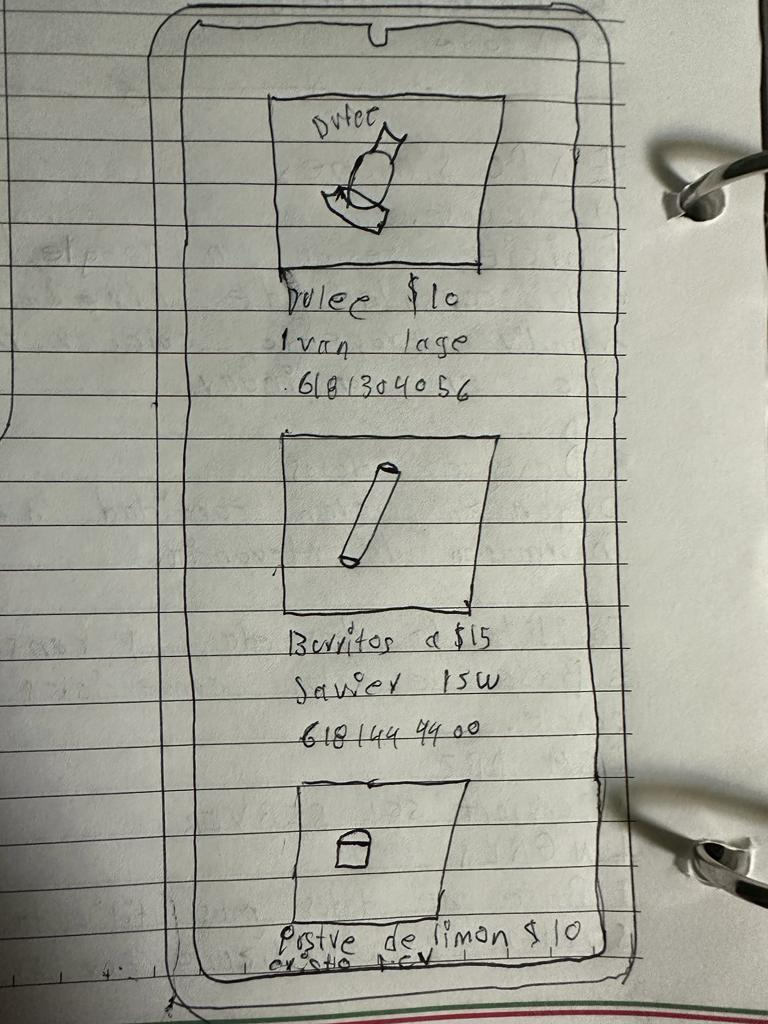 Dulce
Dulce $10
Ivan lage
6181304056
Burritos a $15
Javier ISW
618144 4400
Postre de limon $10